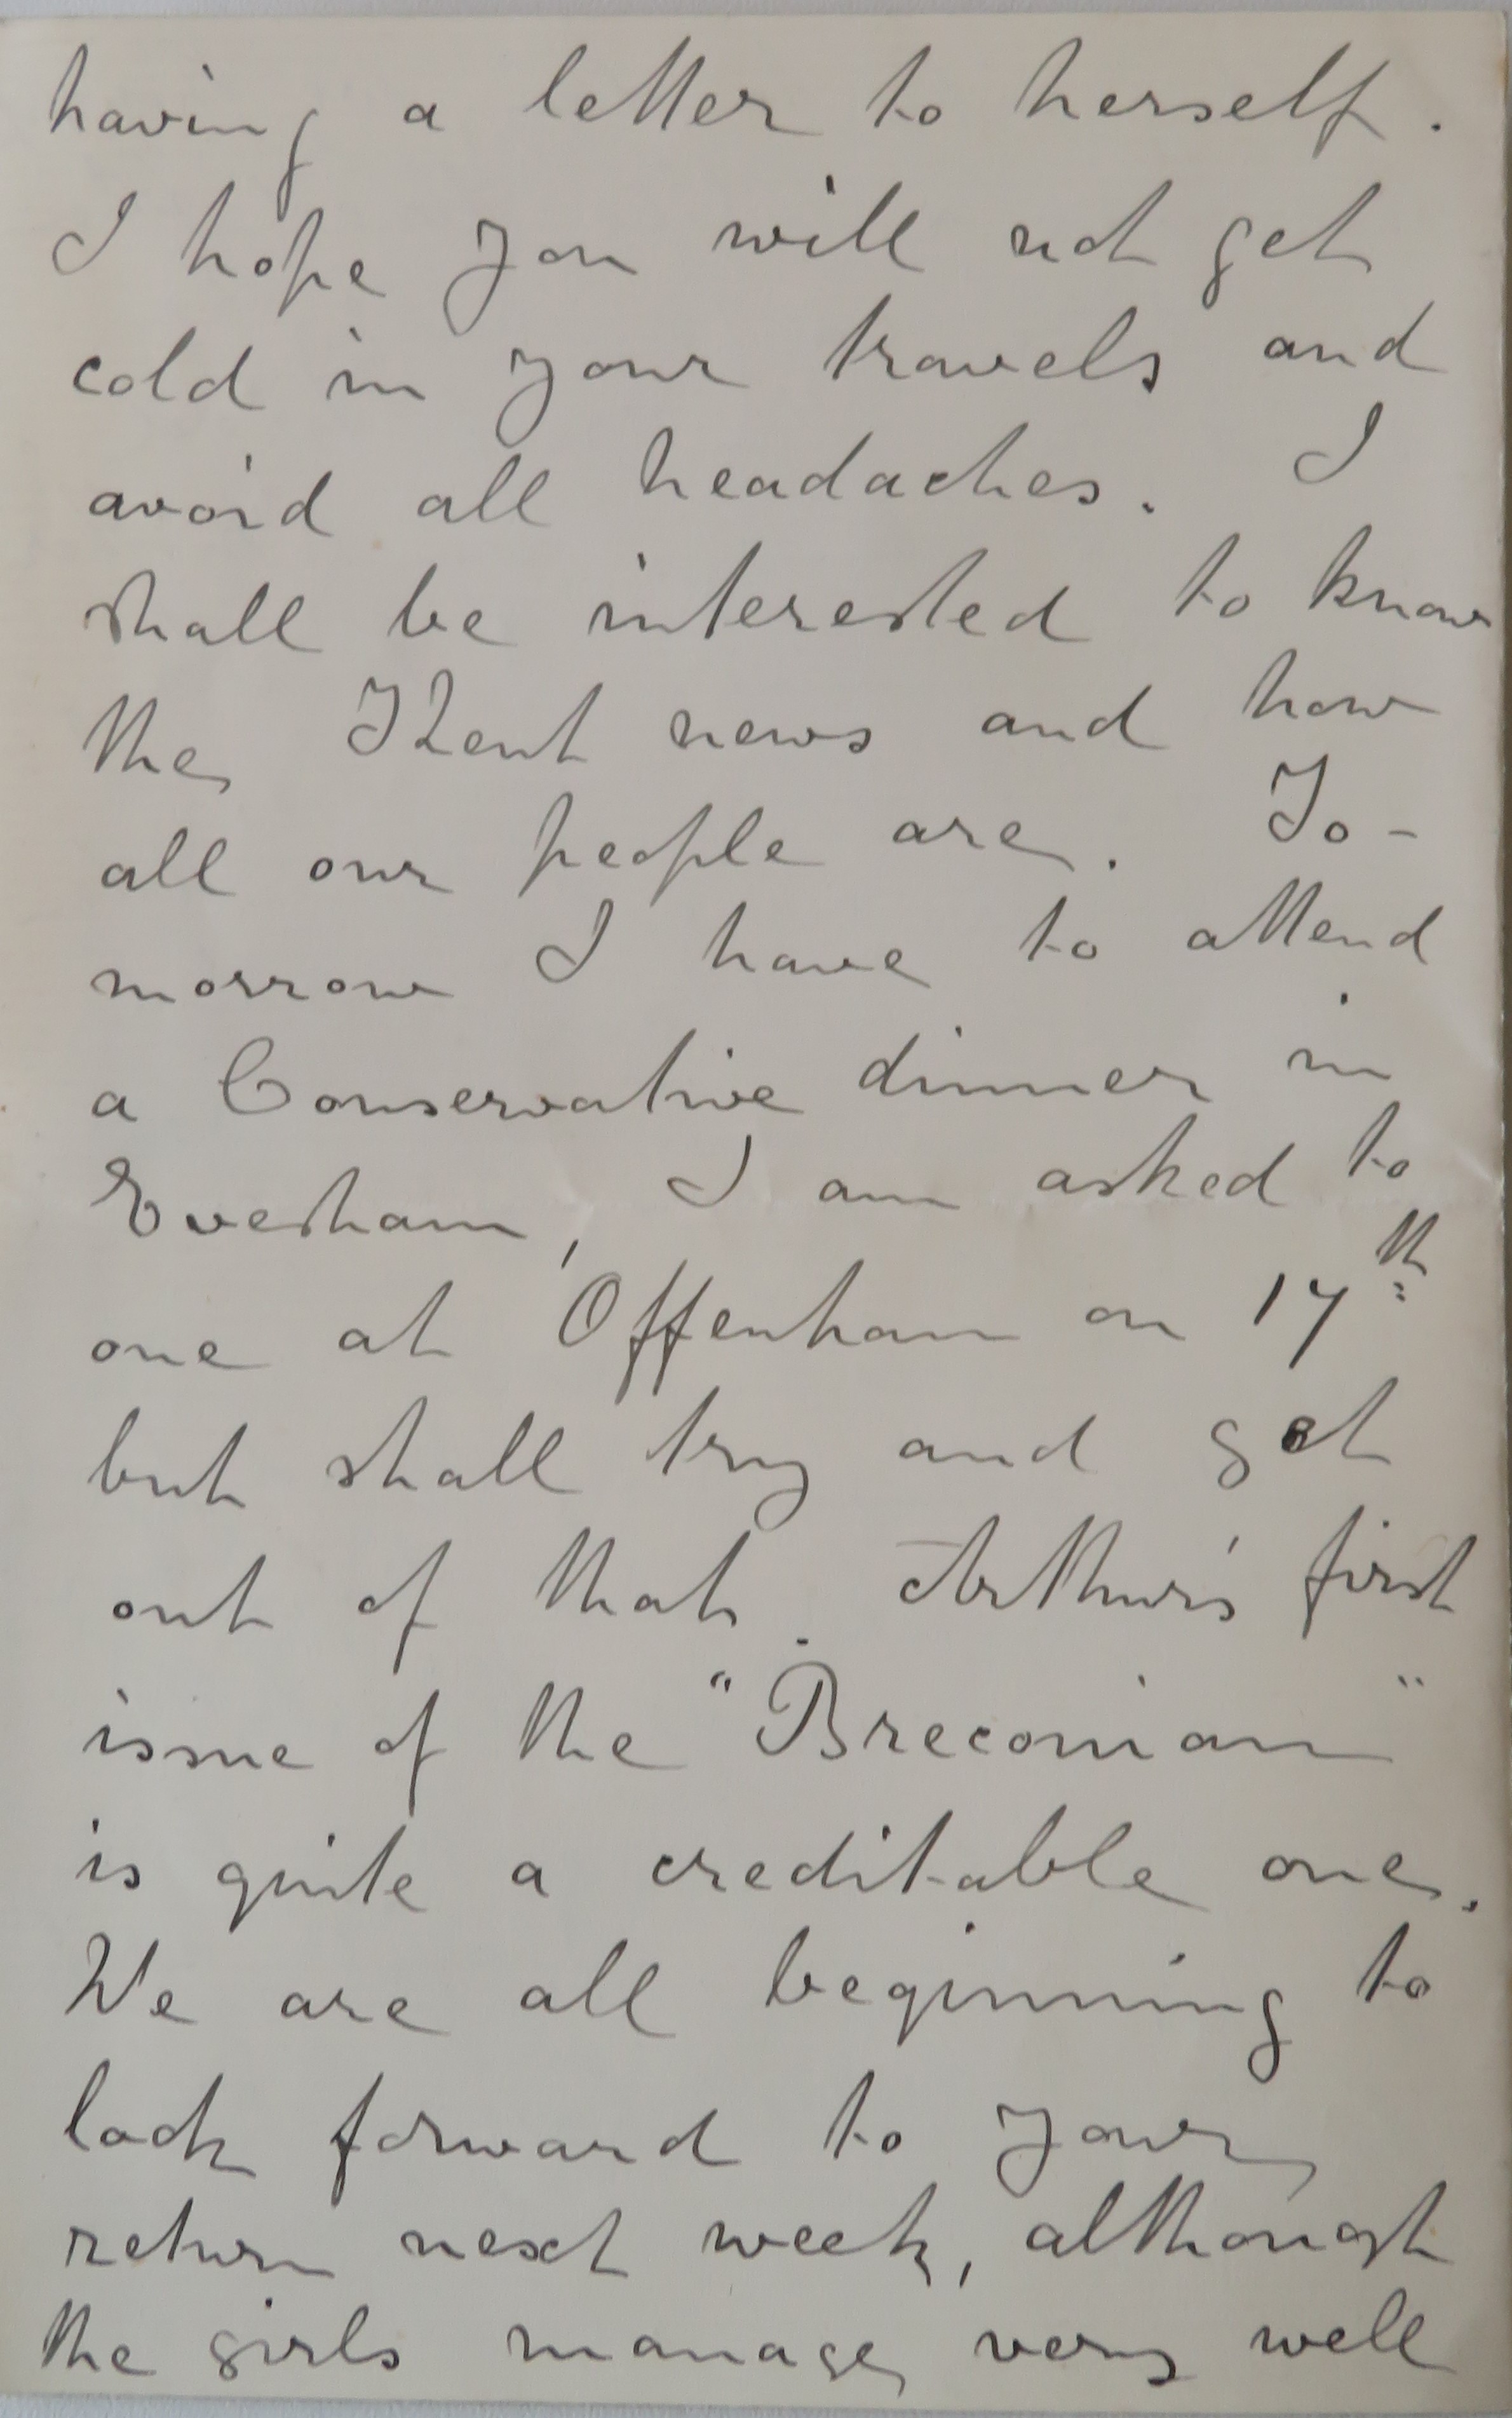 having a letter to herself.
I hope you will not get
cold in your travels and
avoid all headaches. I
shall be interested to know
the Kent news and how
all our people are. To-
morrow I have to attend
a Conservative dinner in
Evesham, I am asked to
one at Offenham on 17th
but shall try and get
out of that. Arthur's first
issue of the "Breconian"
is quite a creditable one.
We are all beginning to
look forward to your
return next week, although
the girls manage very well